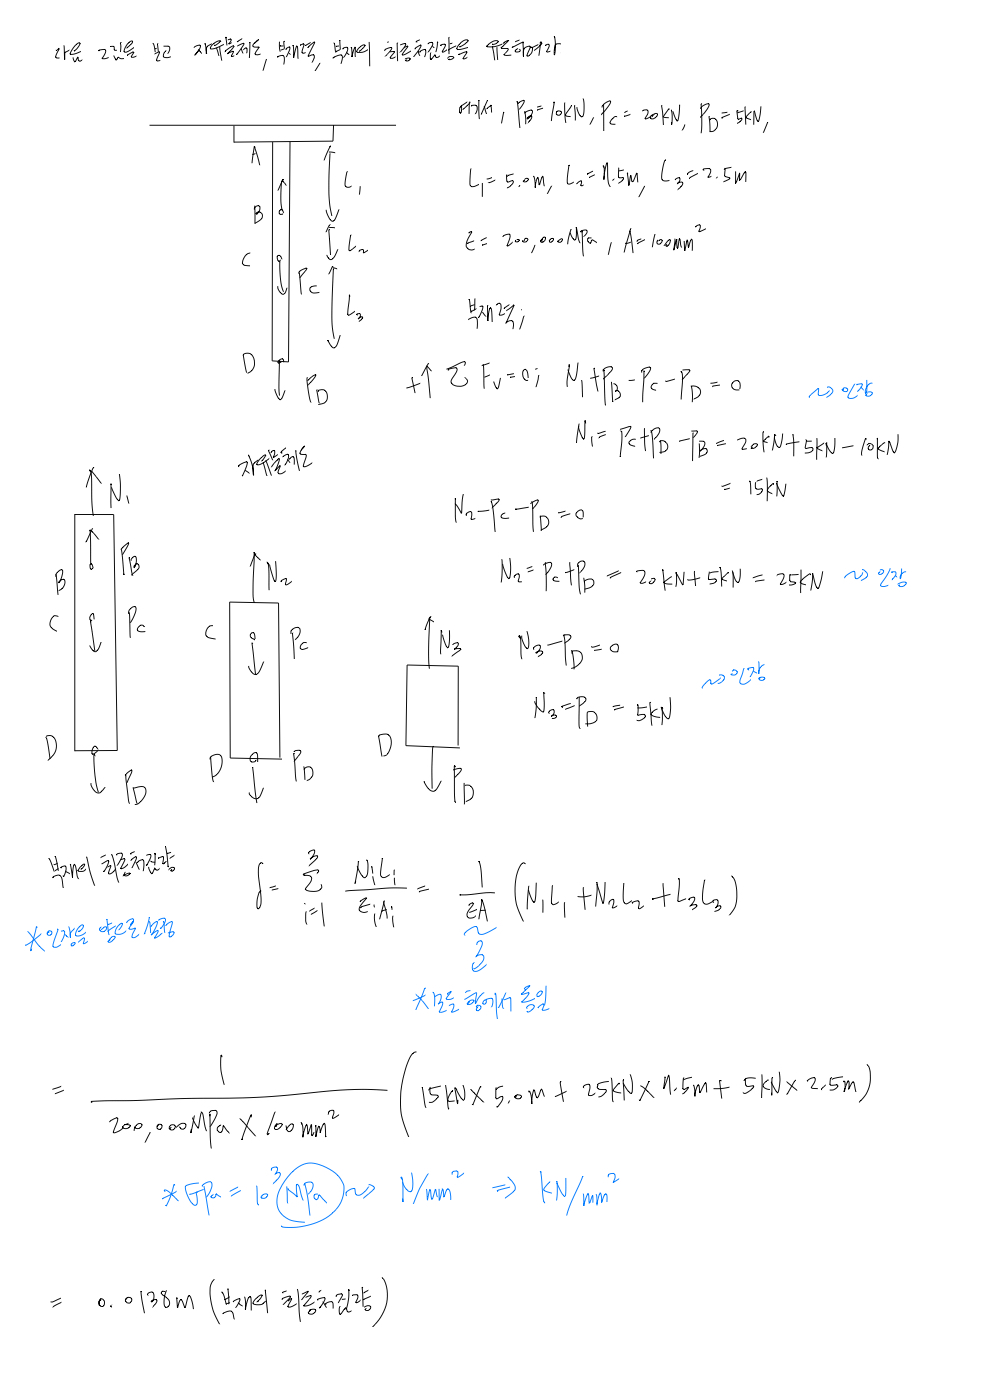 다음 그림을 보고 자유물체도, 부재력, 부재의 최종처짐량을 유도하여라
여기서, P_B=10kN, P_C=20kN, P_D=5kN,
L_1=5.0m, L_2=7.5m, L_3=2.5m
E=200,000MPa, A=100mm^2
A
L_1
B
L_2
C
P_C
L_3
D
P_D
부재력;
+↑ ΣF_V=0; N_1+P_B-P_C-P_D=0 ~> 인장
N_1=P_C+P_D-P_B=20kN+5kN-10kN
=15kN
N_2-P_C-P_D=0
N_2=P_C+P_D=20kN+5kN=25kN ~> 인장
N_3-P_D=0
N_3=P_D=5kN ~> 인장
자유물체도
N_1
P_B
B
C
P_C
D
P_D
N_2
C
P_C
D
P_D
N_3
D
P_D
부재의 최종처짐량
*인장을 양으로 설정
δ= Σ_{i=1}^{3} N_iL_i/E_iA_i = 1/EA (N_1L_1+N_2L_2+L_3L_3)
*모든 항에서 동일
= 1/(200,000MPa×100mm^2) (15kN×5.0m+25kN×7.5m+5kN×2.5m)
*GPa=10^3MPa ~> N/mm^2 => kN/mm^2
= 0.0138m (부재의 최종처짐량)